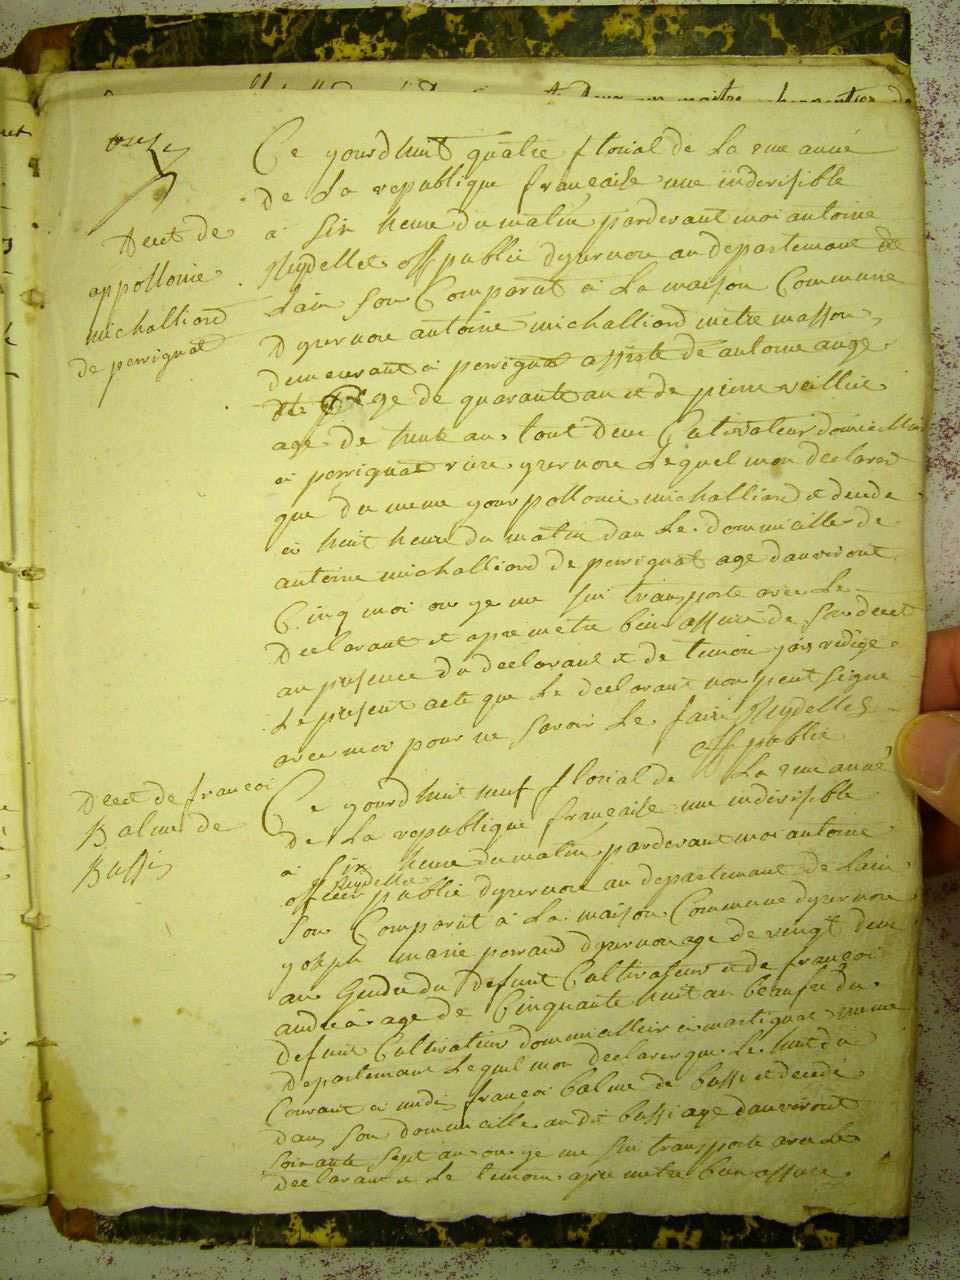 onze
Decet de
appollonie
michalliard
de perrignat
Ce yourdhuit quatre florial de La 2me anné
de La republique françaisse une indivisible
a six heure du matin pardevant moi antoine
Reydellet off public dysernore au departemant de
Lain son Comparut a La maison Commune
dysernore antoine michalliard metre masson
demeurant a perrignat assiste de antoine ange
age de quarante an et de pierre
age de trente an tout deux Cultivateur
a perrignat sure ysernore Lequel mon declarer
que du meme your pollonie michalliard et decede
a huit heure du matin dan Le dommicille de
antoine michalliard de perrignat age danviront
Cinq moi ou ye me sui transporte avec Le
declarant et apré metre bien assuré de son decet
an presence du declarant et de temoin jais redige
Le present acte que Le declarant non peut signe
avec moi pour ne savoir Le faire Reydellet
off public
Decet de françoi
Balme de
Bussi
Ce yourdhuit neuf florial de La 2me anné
de La republique françaisse une indivisible
a six heure du matin pardevant moi antoine
Reydellet
officier public dysernore au departemant de Lain
son Comparut a La maison Commune dysernore
yoseph marie perraud dysernore age de vingt deux
an Gendre du defunt Cultivateur et de françoi
andréa age de Cinquante huit an beaufre du
defunt Cultivateur dommicillier a martignat meme
departemant Lequel mon declarer que Le huit du
Courant a midi françoi balme de bussi et decedé
dan son dommicille au dit bussi age danviront
soixante sept an ou ye me sui transporte avec Le
declarant et Le temoin apré metre bien assuré